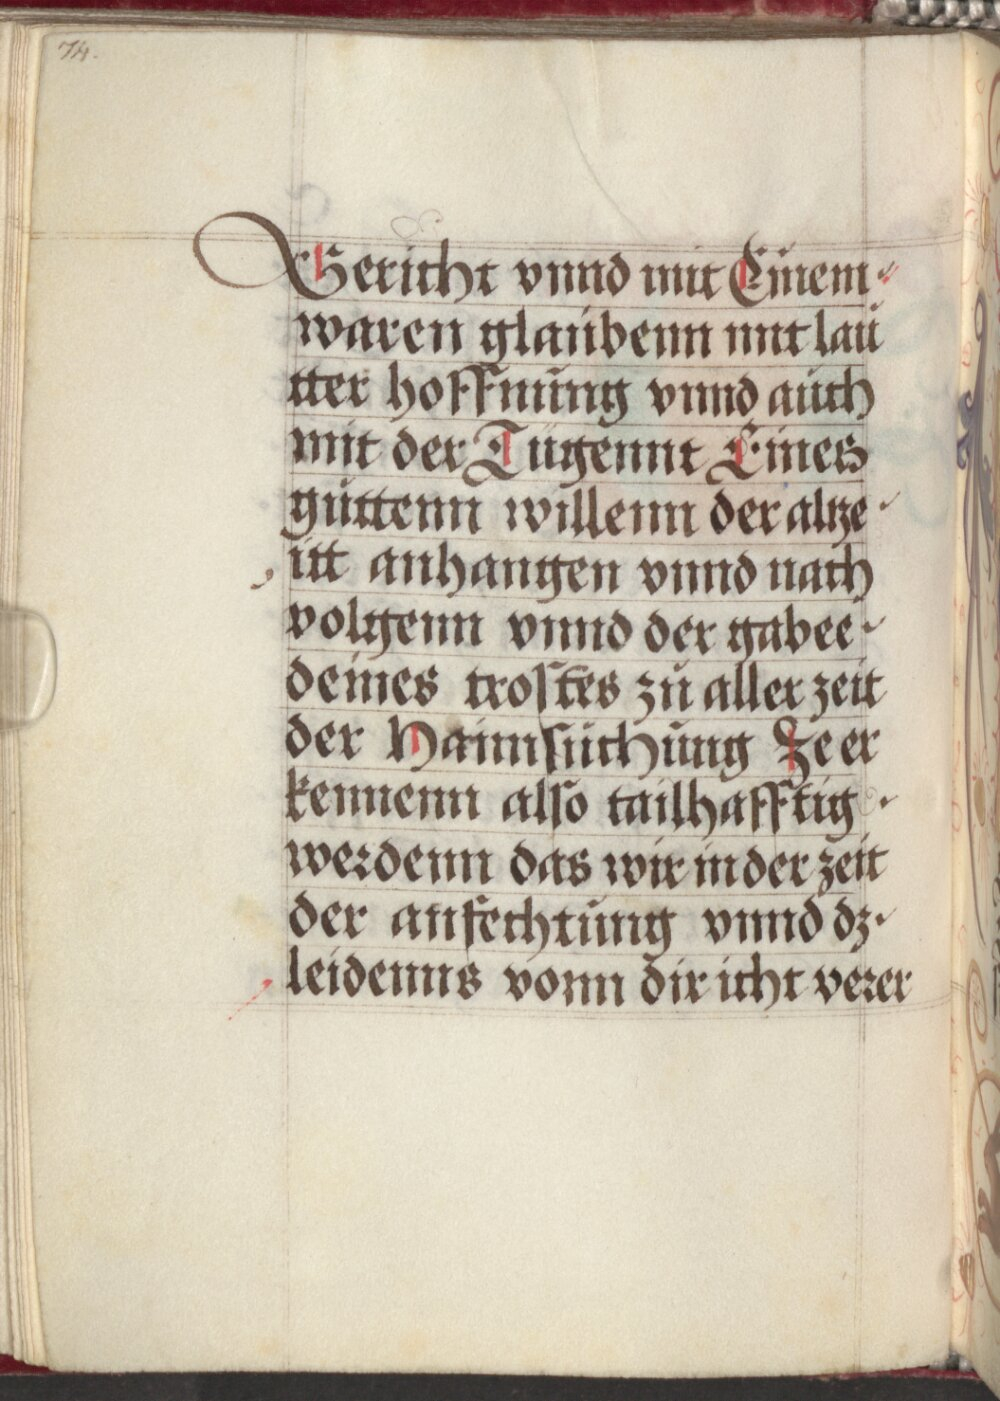 74.
Gericht vnnd mit Einem
waren glaŭbenn mit laŭ
tter hoffnŭng vnnd aŭch
mit der Tŭgennt Eines
gŭttenn willenn der altze
itt anhangen vnnd nach
volgenn vnnd der gabee
deines trostes zŭ aller zeit
der Haimsŭchŭng Ze er
kennenn also tailhafftig
werdenn das wir in der zeit
der anfechtŭng vnnd dz
leidenns vonn dir icht verer